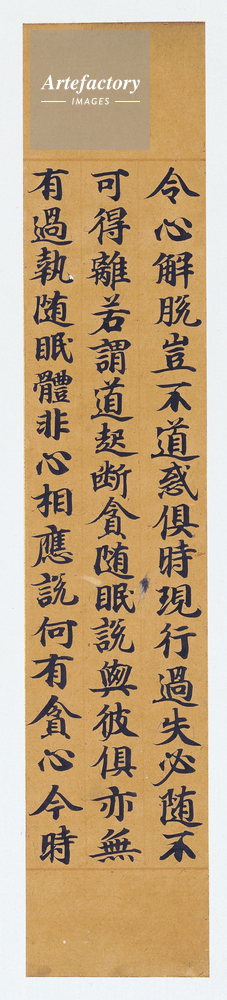 Artefactory
IMAGES
令心解脱豈不道惑俱時現行過失必随不
可得離若謂道起断貪随眠説與彼俱亦無
有過執随眠體非心相應説何有貪心今時